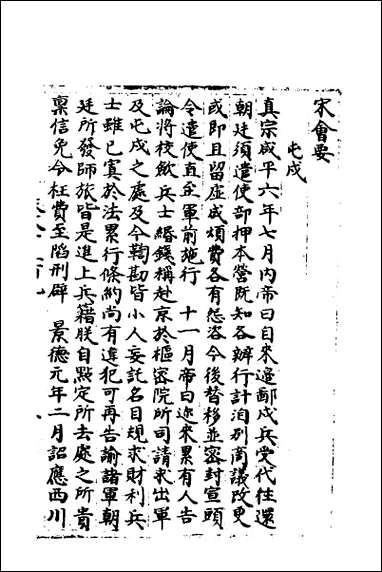 宋會要
屯戍
真宗咸平六年七月內帝曰自來邊鄙戍兵受代往還
朝廷須遣使部押本營既知各辦行計洎別商議改更
或即且留虛成煩費各有怨咨今後替移並密封宣頭
令遣使直至軍前施行 十一月帝曰迩來累有人告
論將校歛兵士緡錢稱赴京於樞密院所司請求出軍
及屯戍之處及令鞫勘皆小人妄託名目規求財利兵
士雖已寘於法累行條約尚有違犯可再告諭諸軍朝
廷所發師旅皆是進上兵籍朕自點定所去處之所貴
稟信免令枉費至陷刑辟 景德元年二月詔應西川